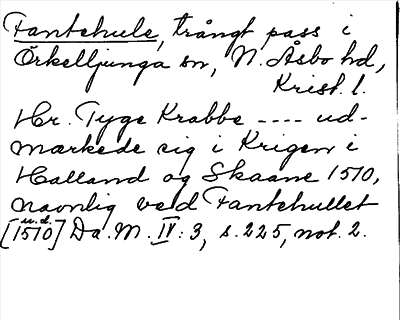 Fantehule, trångt pass i
Örkelljunga sn, N. Åsbo hd,
Krist. l.
Hr. Tyge Krabbe ---- ud-
mærkede sig i Krigen i
Halland og Skaane 1510,
navnlig ved Fantehullet
[u.d. 1510] Da. M. IV: 3, s. 225, not. 2.